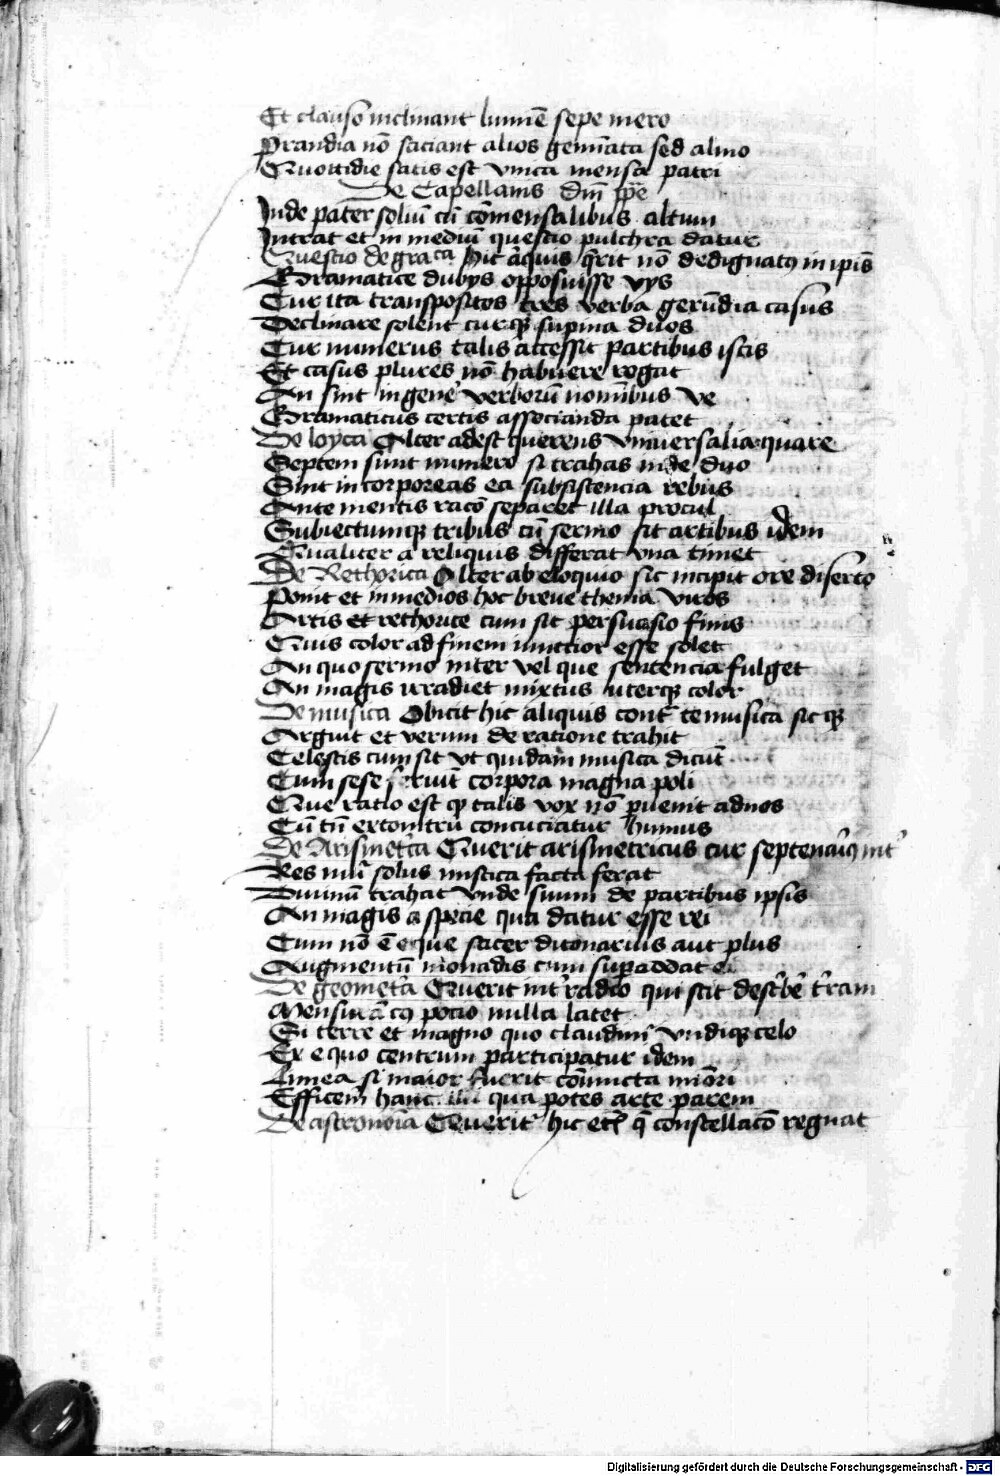 Et clauso inclinant lumē sepe mero
Prandia nō saciant alios gemīata sed almo
Quottidie satis est vnica mensa patri
De Capellanis dnī ppe
Inde pater soliū cū cōmensalibus altum
Intrat et in mediū questio pulchra datur
Questio de graca hic aliquis q̄rit nō dedignatꝯ in ipīs
Gramatice dubijs opposuisse vijs
Cur ita transpositos tres verba gerūdia casus
Declinare solent curqꝫ supina duos
Cur numerus talis accessit partibus istis
Et casus plures nō habuere rogat
An sint in gene' verborū nomībus ve
Gramaticus certis associanda patet
De loyca Alter adest querens vniuersalia quare
Septem sunt numero si trahas inde duo
Sint incorporeas ea subsistencia rebus
Ante mentis racō separet illa procul
Subiectumqꝫ tribus cū sermo sit artibus idem
Qualiter a reliquis differat vna timet
De Rethorica Alter ab eloquio sic incipit ore diserto
Ponit et in medios hoc breue thema viros
Artis et rethorice cum sit persuasio finis
Quis color ad finem iunctior esse solet
An quo sermo inter vel que sentencia fulget
An magis irradiet mixtus uterqꝫ color
De musica Obicit hic aliquis cont' te musica sic qꝫ
Arguit et verum de ratione trahit
Celestis cum sit vt quidam musica dicūt
Cum sese feriūt corpora magna poli
Que ratio est qꝫ talis vox nō ꝑuenit ad nos
Cū tn̄ ex tonitru concuciatur humus
De Arismet'ca Querit arismetricus cur septenariꝯ int'
Res nūi solus mistica facta ferat
Diuinū trahat vnde suum de partibus ipsis
An magis a specie qua datur esse rei
Cum nō ē eque sacer ditonarius aut plus
Augmentū monadis cum supaddat ei
De geomet'a Querit int' radio qui scit desc'be' t'ram
Mensurā cꝯ pocio nulla latet
Si terre et magno quo claudim' vndiqꝫ celo
Ex equo centrum participatur idem
Linea si maior fuerit cōiuncta mīori
Efficem hanc illi qua potes arte parem
De astronōia Querit' hic etc̄ q̄ constellacō regnat
Digitalisierung gefördert durch die Deutsche Forschungsgemeinschaft - DFG